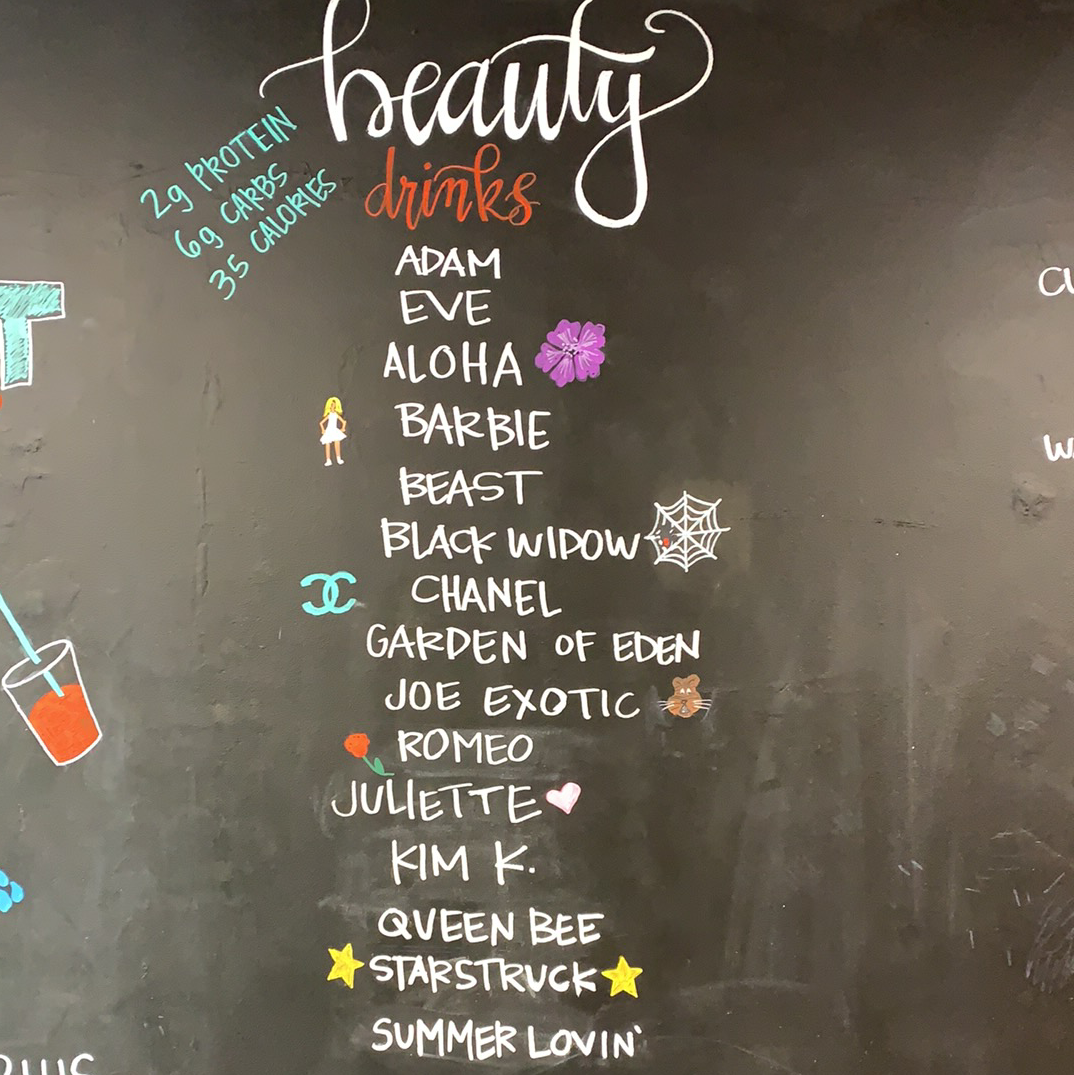 beauty
drinks
2g PROTEIN
6g CARBS
35 CALORIES
ADAM
EVE
ALOHA
BARBIE
BEAST
BLACK WIDOW
CHANEL
GARDEN OF EDEN
JOE EXOTIC
ROMEO
JULIETTE
KIM K.
QUEEN BEE
STARSTRUCK
SUMMER LOVIN'
T